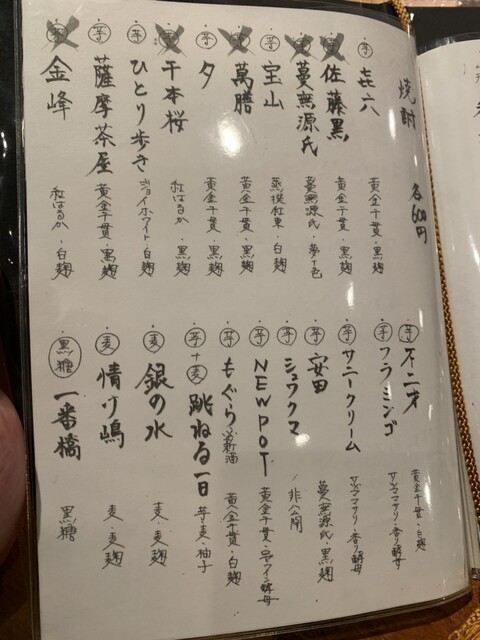 焼酎 各600円
芋 㐂六 黄金千貫・黒麹
佐藤黒 黄金千貫・黒麹
蔓無源氏 蔓無源氏・夢十色
芋 宝山 蒸撰紅東・白麹
萬膳 黄金千貫・黒麹
芋 夕 黄金千貫・黒麹
千本桜 紅はるか・黒麹
芋 ひとり歩き ジョイホワイト・白麹
芋 薩摩茶屋 黄金千貫・黒麹
金峰 紅はるか・白麹
芋 不二才 黄金千貫・白麹
芋 フラミンゴ サツママサリ・香り酵母
芋 サニークリーム サツママサリ・香り酵母
芋 安田 蔓無源氏・黒麹
芋 非公開
芋 NEWPOT 黄金千貫・芋・ワイン酵母
芋 もぐら 新酒 黄金千貫・白麹
芋+麦 跳ねる一日 芋麦・柚子
麦 銀の水 麦・麦麹
麦 情け嶋 麦・麦麹
黒糖 一番橋 黒糖